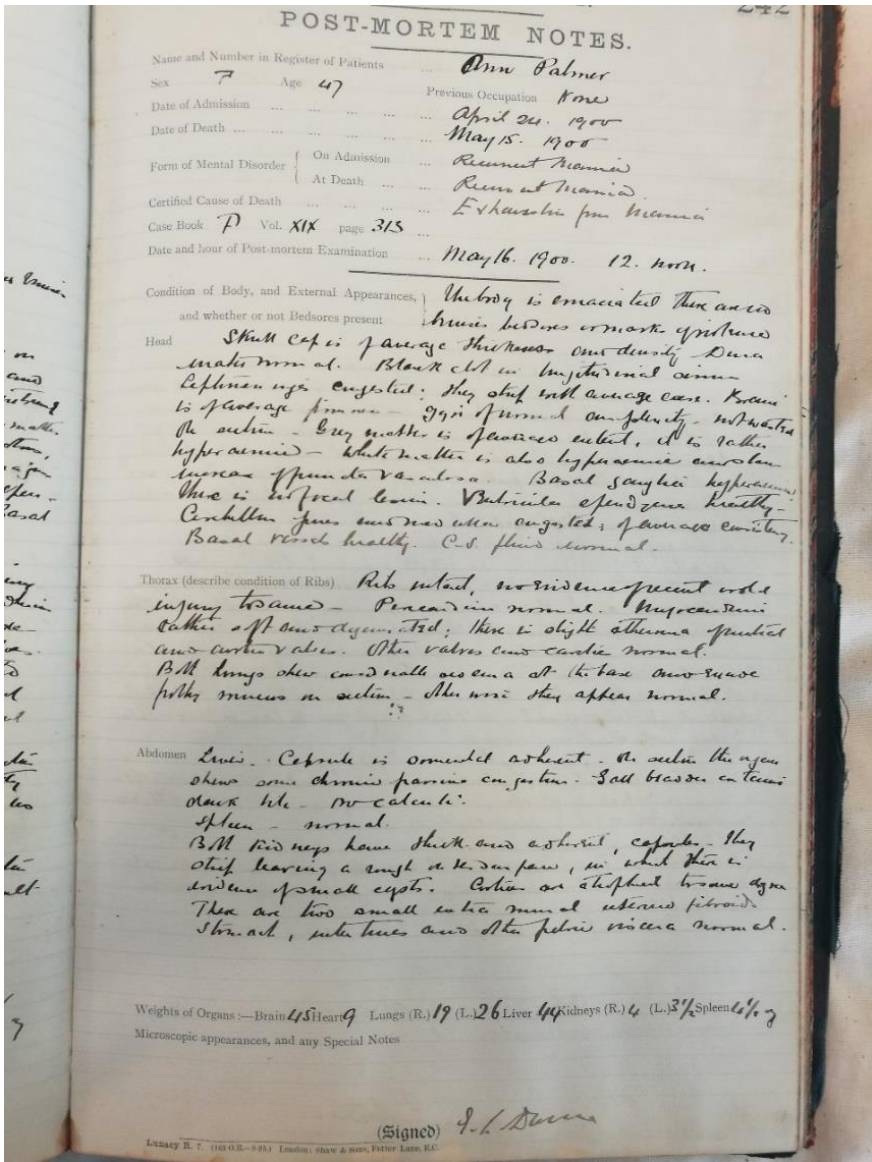 242
POST-MORTEM NOTES.
Name and Number in Register of Patients ... Ann Palmer
Sex F Age 47 Previous Occupation None
Date of Admission ... ... ... ... ... April 24. 1900
Date of Death ... ... ... ... ... ... May 15. 1900
Form of Mental Disorder { On Admission ... Recurrent Mania
At Death ... ... Recurrent Mania
Certified Cause of Death ... ... ... ... Exhaustion from Mania
Case Book P Vol. XIX page 315 ...
Date and hour of Post-mortem Examination ... May 16. 1900. 12. noon.
Condition of Body, and External Appearances, and whether or not Bedsores present } The body is emaciated there are no
bruises bedsores or marks of violence
Head Skull cap is of average thickness and density Dura
mater normal. Blank clot in longitudinal sinus
Leptomeninges congested; they strip with average ease. Brain
is of average firmness - gyri of normal complexity - not wasted
On section - Grey matter is of average extent, it is rather
hyperaemic - white matter is also hyperaemic and shows
increase of puncta vasculosa. Basal ganglia hyperaemic
there is no focal lesion. Ventricular ependyma healthy -
Cerebellum pons and medulla congested; of average consistency.
Basal vessels healthy. C-S. fluid normal.
Thorax (describe condition of Ribs) Ribs intact, no evidence of recent or old
injury to same - Pericardium normal. Myocardium
rather soft and degenerated; there is slight atheroma of mitral
and aortic valves. Other valves and cardiac normal.
Both lungs shew considerable oedema at the base and exude
frothy mucus on section - otherwise they appear normal.
Abdomen Liver. - Capsule is somewhat adherent. On section the organ
shews some chronic passive congestion - Gall bladder contains
dark bile - no calculi.
Spleen - normal.
Both kidneys have thick and adherent, capsules - They
strip leaving a rough surface, in which there is
evidence of small cysts. Cortices are atrophied to some degree
There are two small intra mural uterine fibroids
Stomach, intestines and other pelvic viscera normal.
Weights of Organs :—Brain 45 Heart 9 Lungs (R.) 19 (L.) 26 Liver 44 Kidneys (R.) 4 (L.) 3½ Spleen 4½ oz
Microscopic appearances, and any Special Notes
(Signed)
Lunacy R. 7. London: Shaw & Sons, Fetter Lane, E.C.